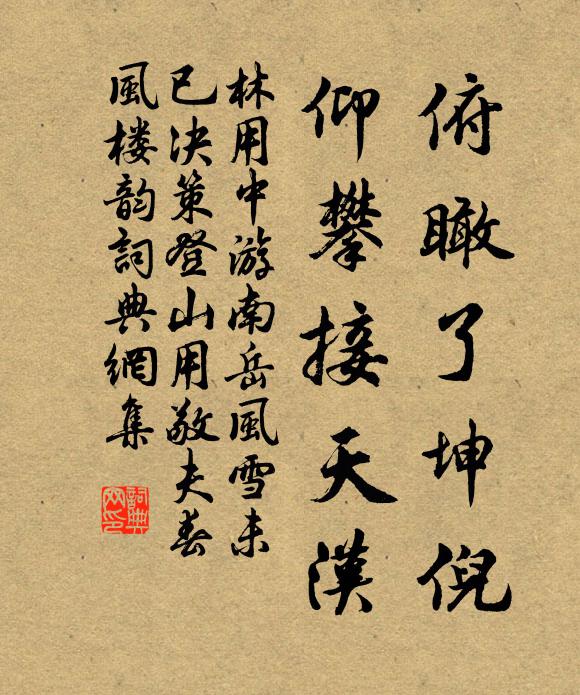 俯瞰了坤倪
仰攀接天漢
林用中游南岳風雪未
已决策登山用敬夫春
風楼韵詞典網集
詞典
网印